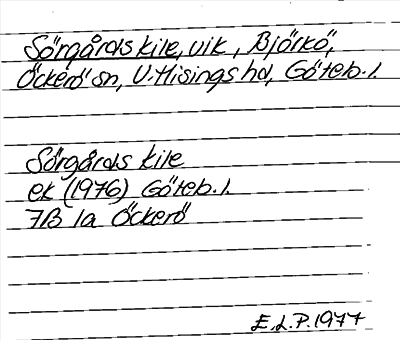 Sörgårds kile, vik, Björkö,
Öckerö sn, V. Hisings hd, Göteb. l.
Sörgårds kile
ek (1976) Göteb. l.
7B 1a Öckerö
E.L.P. 1977